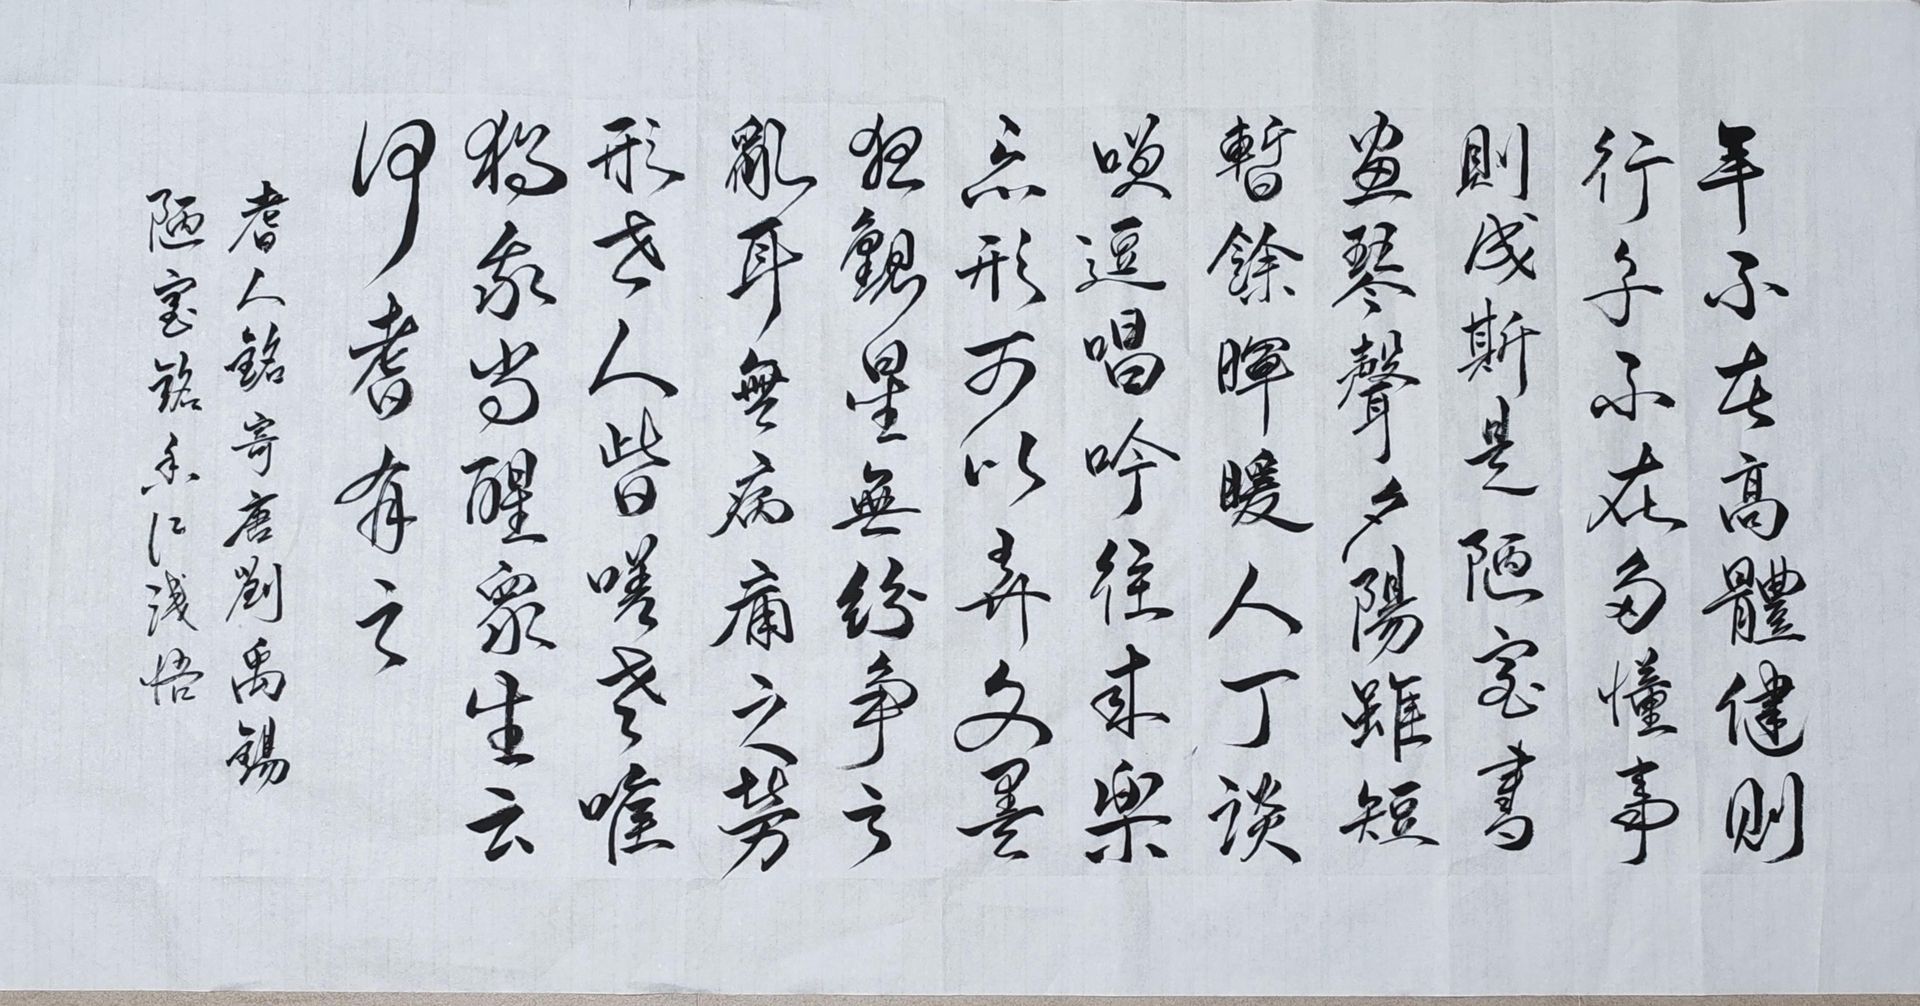 年不在高體健則
行子不在多懂事
則成斯是陋室書
畫琴聲夕陽雖短
暫餘暉暖人丁談
笑逗唱吟往來樂
忘形可以弄文墨
狂觀星無紛爭之
亂耳無病痛之勞
形老人皆嗟老唯
獨我尚醒眾生云
何耆有之
耆人銘寄唐劉禹錫
陋室銘 淺悟